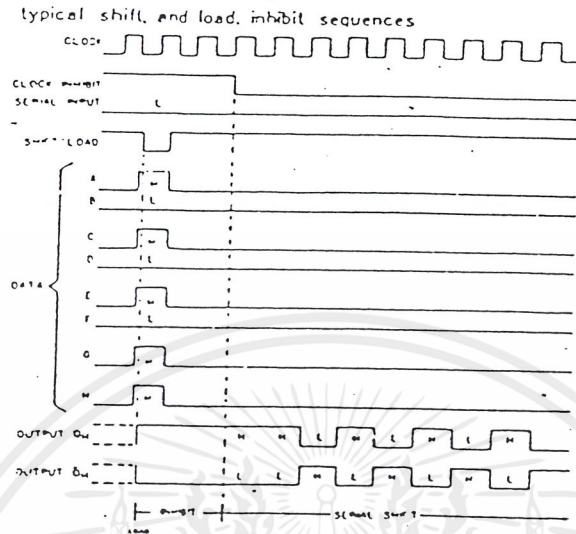 typical shift, and load, inhibit sequences
CLOCK
CLOCK INHIBIT
SERIAL INPUT L
SHIFT/LOAD
A H
B L
C H
D L
DATA
E H
F L
G H
H H
OUTPUT QH H H L H L H L H
OUTPUT Q̅H L L H L H L H L
INHIBIT SERIAL SHIFT
LOAD